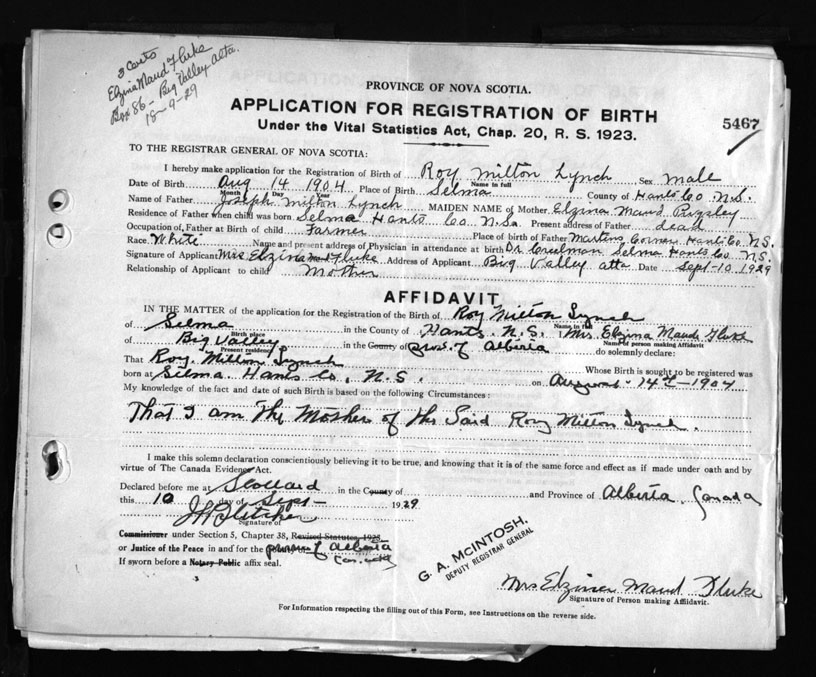 3 Cents
Elzina Maud Fluke
Box 86 - Big Valley Alta.
18-9-29
PROVINCE OF NOVA SCOTIA.
APPLICATION FOR REGISTRATION OF BIRTH
Under the Vital Statistics Act, Chap. 20, R. S. 1923.
5467
TO THE REGISTRAR GENERAL OF NOVA SCOTIA:
I hereby make application for the Registration of Birth of Roy Milton Lynch Sex male
Name in full
Date of Birth Aug 14 1904 Place of Birth Selma County of Hants Co N.S.
Month Day Year
Name of Father Joseph Milton Lynch MAIDEN NAME of Mother Elzina Maud Pugsley
Residence of Father when child was born Selma Hants Co N.S. Present address of Father dead
Occupation of Father at Birth of child Farmer Place of birth of Father Martins Corner Hants Co N.S.
Race White Name and present address of Physician in attendance at birth Dr Creelman Selma Hants Co N.S.
Signature of Applicant Mrs Elzina Maud Fluke Address of Applicant Big Valley Alta Date Sept-10 1929
Relationship of Applicant to child Mother
AFFIDAVIT
IN THE MATTER of the application for the Registration of the Birth of Roy Milton Lynch
Name in full
of Selma in the County of Hants. N.S. I Mrs Elzina Maude Fluke
Birth place
Name of person making Affidavit
of Big Valley in the County of prov. of Alberta do solemnly declare:
Present residence
That Roy. Milton Lynch Whose Birth is sought to be registered was
born at Selma. Hants Co, N.S. on August 14th 1904
My knowledge of the fact and date of such Birth is based on the following Circumstances:
That I am The Mother of the Said Roy Milton Lynch.
I make this solemn declaration conscientiously believing it to be true, and knowing that it is of the same force and effect as if made under oath and by
virtue of The Canada Evidence Act.
Declared before me at Scollard in the County of and Province of Alberta. Canada
this 10 day of Sept- 1929
Signature of
Commissioner under Section 5, Chapter 38, Revised Statutes, 1923
or Justice of the Peace in and for the province of Alberta
Canada
If sworn before a Notary Public affix seal.
G. A. McINTOSH,
DEPUTY REGISTRAR GENERAL
Mrs Elzina Maud Fluke
Signature of Person making Affidavit.
For Information respecting the filling out of this Form, see Instructions on the reverse side.